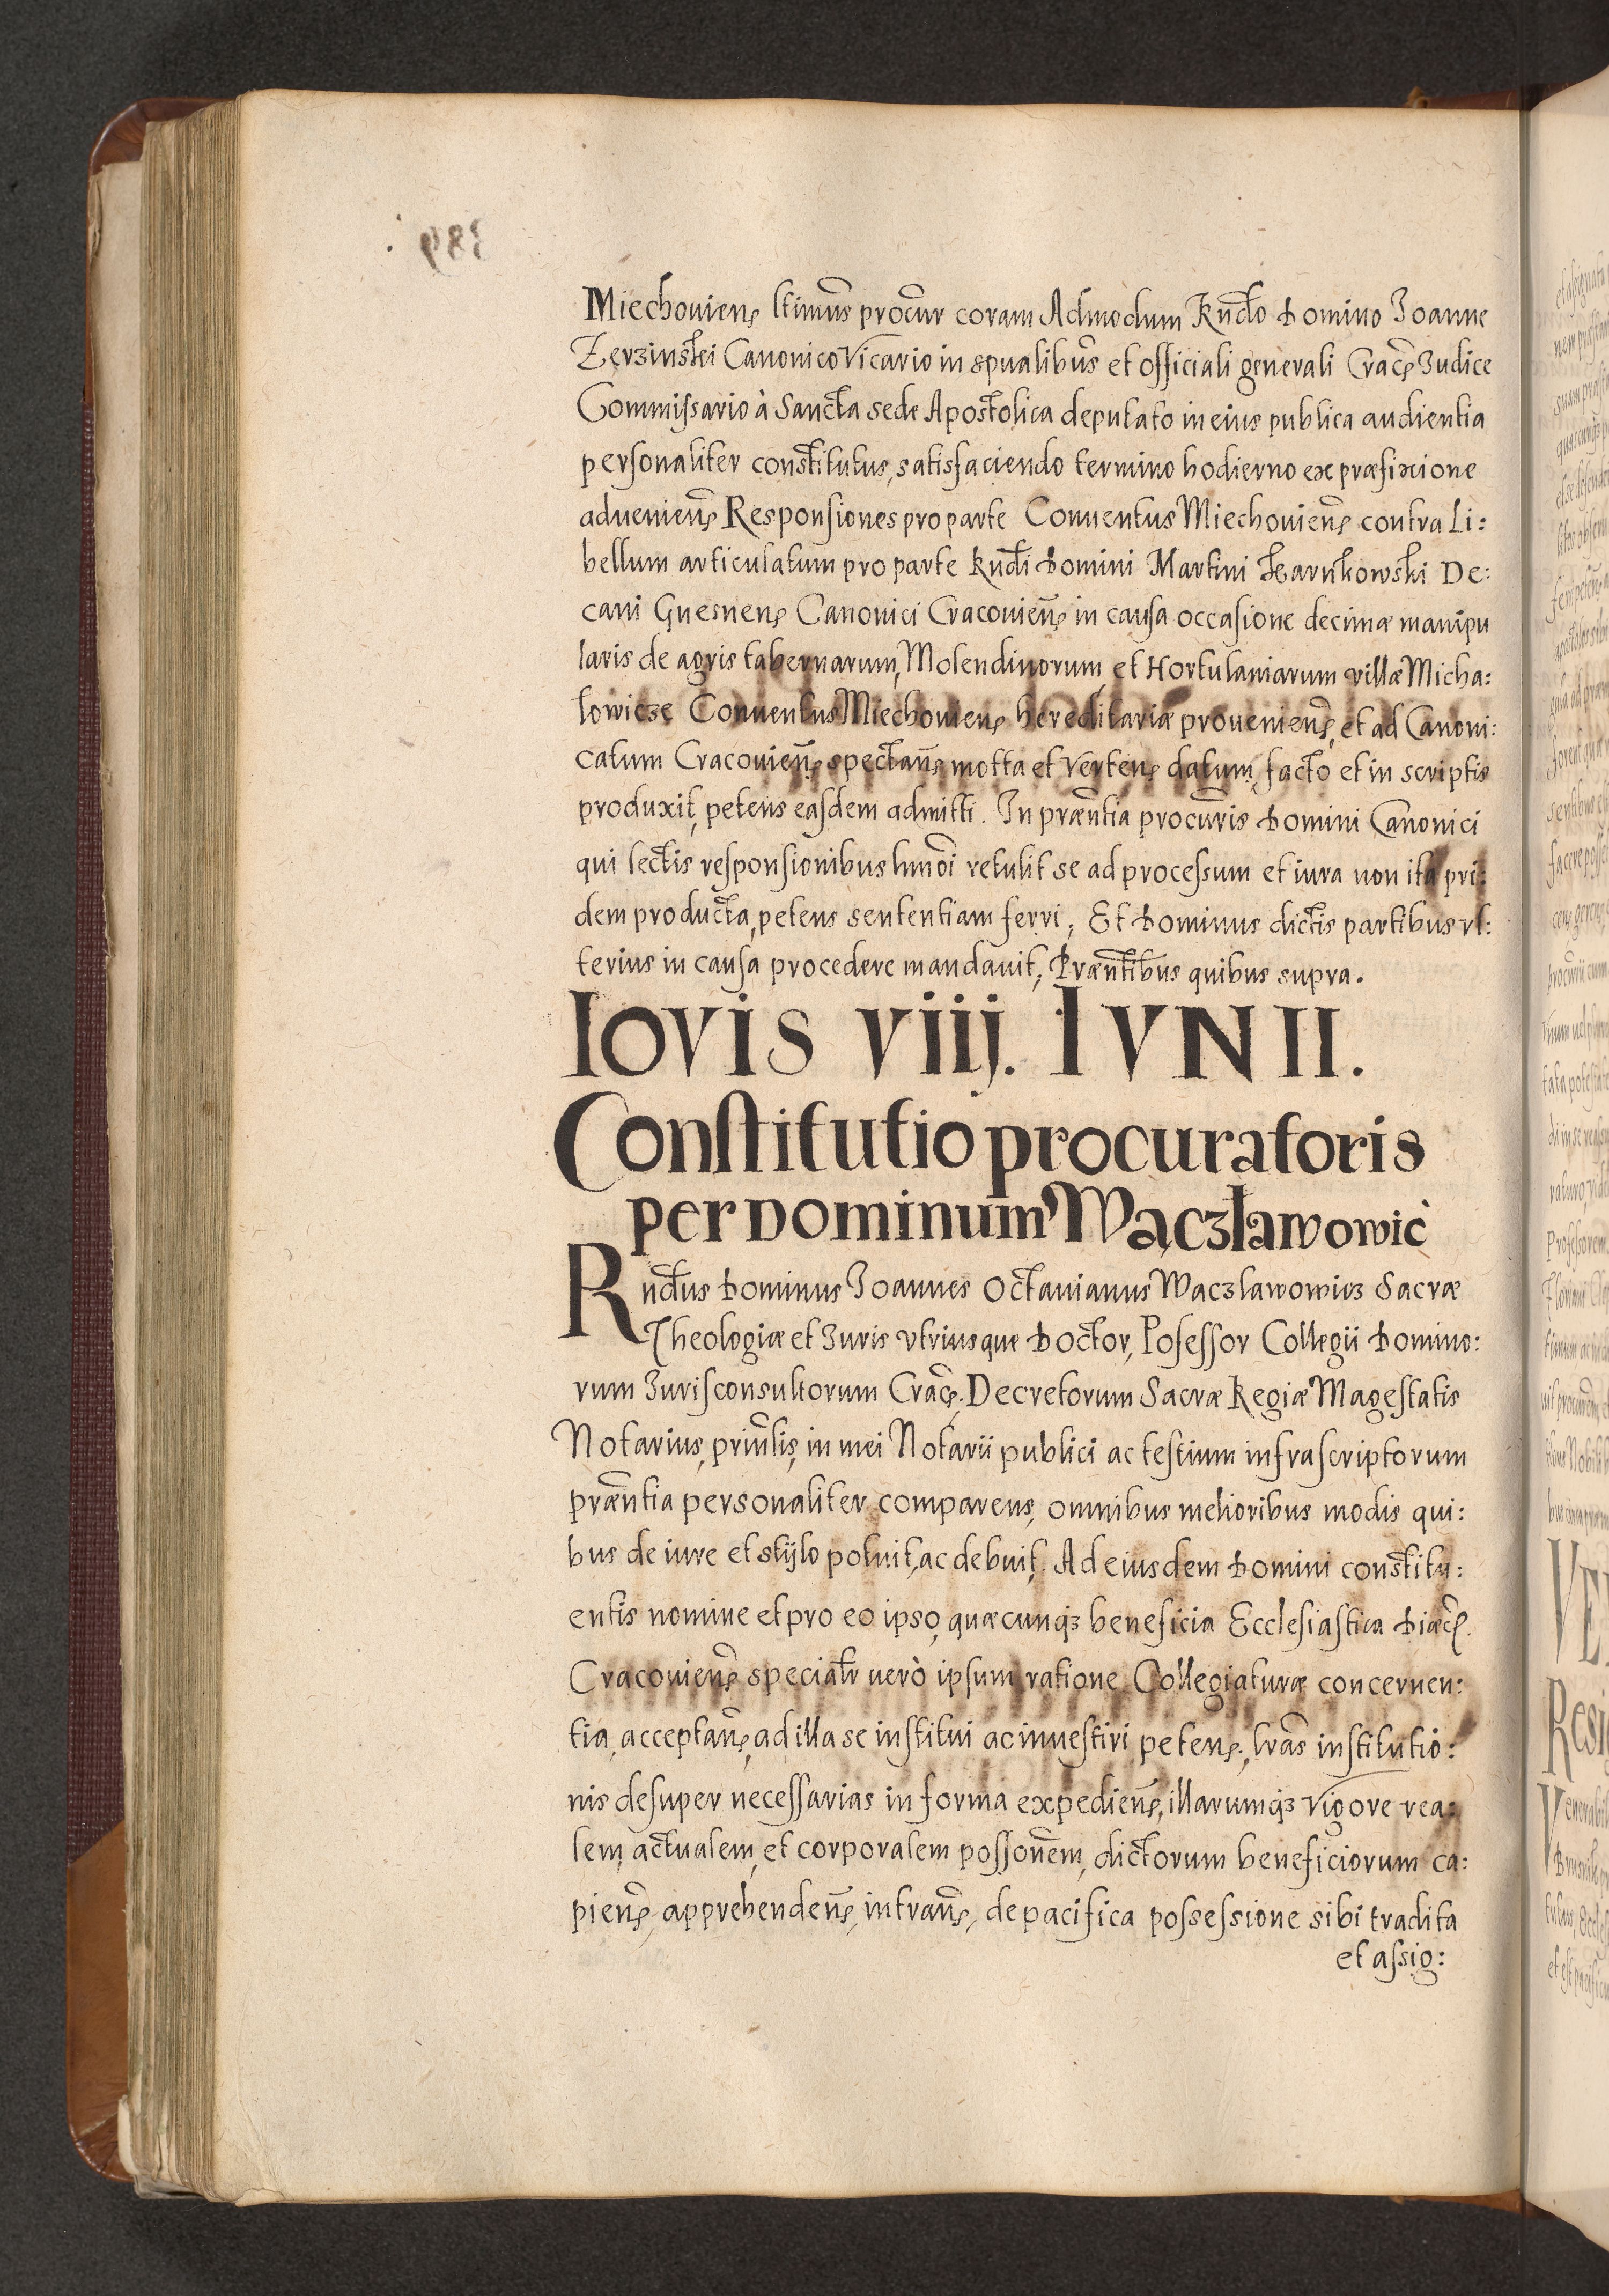 Miechouiens ltimus procur coram Admodum Rndo Domino Joanne
Zerzinski Canonico Vicario in spualibus et officiali generali Crac Judice
Commissario à Sancta sede Apostolica deputato in eius publica audientia
personaliter constitutus, satisfaciendo termino hodierno ex præfixione
adueniens Responsiones pro parte Conuentus Miechouiens contra Li:
bellum articulatum pro parte Rndi Domini Martini Karnkowski De:
cani Gnesnens Canonici Cracouiens in causa occasione decimæ manipu
laris de agris tabernarum, Molendinorum et Hortulaniarum villæ Micha:
łowicze Conuentus Miechouiens hereditariæ proueniens, et ad Canoni:
catum Cracouiens spectans motta et vertens datum, facto et in scriptis
produxit, petens easdem admitti. In præntia procuris Domini Canonici
qui lectis responsionibus hmoi retulit se ad processum et iura non ita pri:
dem producta, petens sententiam ferri, Et Dominus dictis partibus vl:
terius in causa procedere mandauit, Præntibus quibus supra.
IOVIS viij. IVNII.
Constitutio procuratoris
per Dominum Wączławowic
Rndus Dominus Joannes Octauianus Waczlawowicz Sacræ
Theologiæ et Juris vtriusque Doctor, Posessor Collegii Domino:
rum Jurisconsultorum Crac. Decretorum Sacræ Regiæ Magestatis
Notarius, prinlis, in mei Notarii publici ac testium infrascriptorum
præntia personaliter comparens, omnibus melioribus modis qui:
bus de iure et stylo potuit, ac debuit. Ad eiusdem Domini constitu:
entis nomine et pro eo ipso, quæcunqз beneficia Ecclesiastica Diæc.
Cracouiens specialr verò ipsum ratione Collegiaturæ concernen:
tia, acceptans, ad illa se institui ac inuestiri petens, lras institutio:
nis desuper necessarias in forma expediens, illarumqз vigore rea:
lem, actualem, et corporalem possonem, dictorum beneficiorum ca:
piens, apprehendens, intrans, de pacifica possessione sibi tradita
et assig: